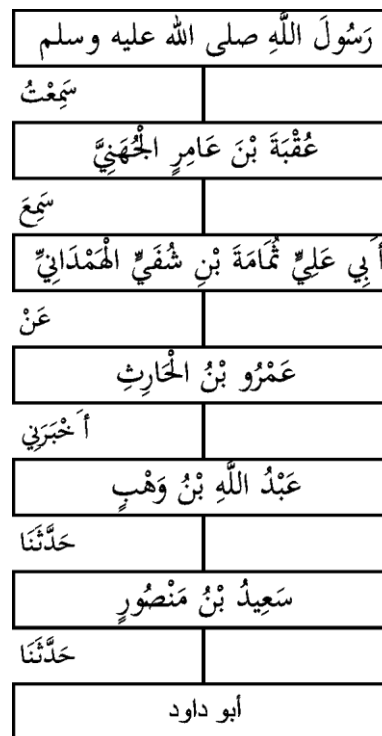 رَسُولَ اللَّهِ صلى الله عليه وسلم
سَمِعْتُ
عُقْبَةَ بْنَ عَامِرٍ الْجُهَنِيَّ
سَمِعَ
أَبِي عَلِيٍّ ثُمَامَةَ بْنِ شُفَيٍّ الْهَمْدَانِيِّ
عَنْ
عَمْرُو بْنُ الْحَارِثِ
أَخْبَرَنِي
عَبْدُ اللَّهِ بْنُ وَهْبٍ
حَدَّثَنَا
سَعِيدُ بْنُ مَنْصُورٍ
حَدَّثَنَا
أبو داود